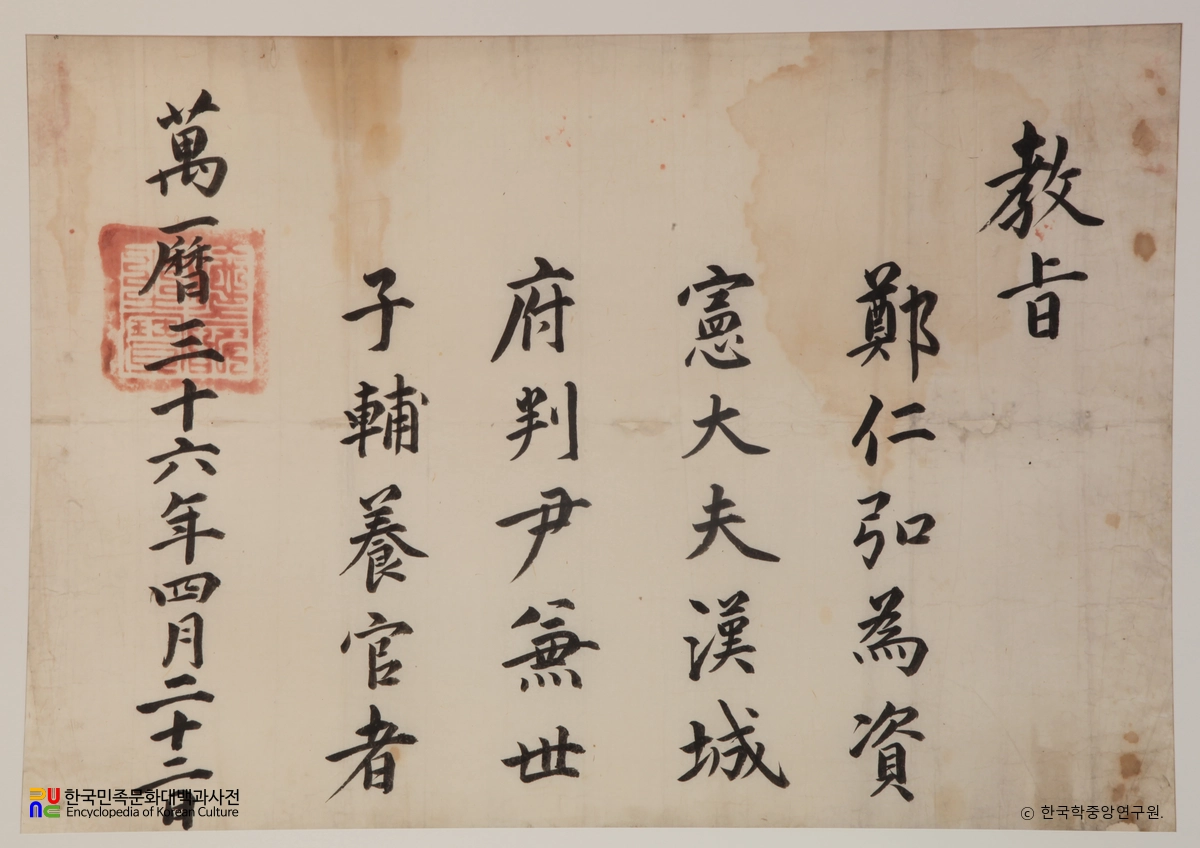 教旨
鄭仁弘為資
憲大夫漢城
府判尹兼世
子輔養官者
萬曆三十六年四月二十二日
한국민족문화대백과사전
Encyclopedia of Korean Culture
ⓒ 한국학중앙연구원.